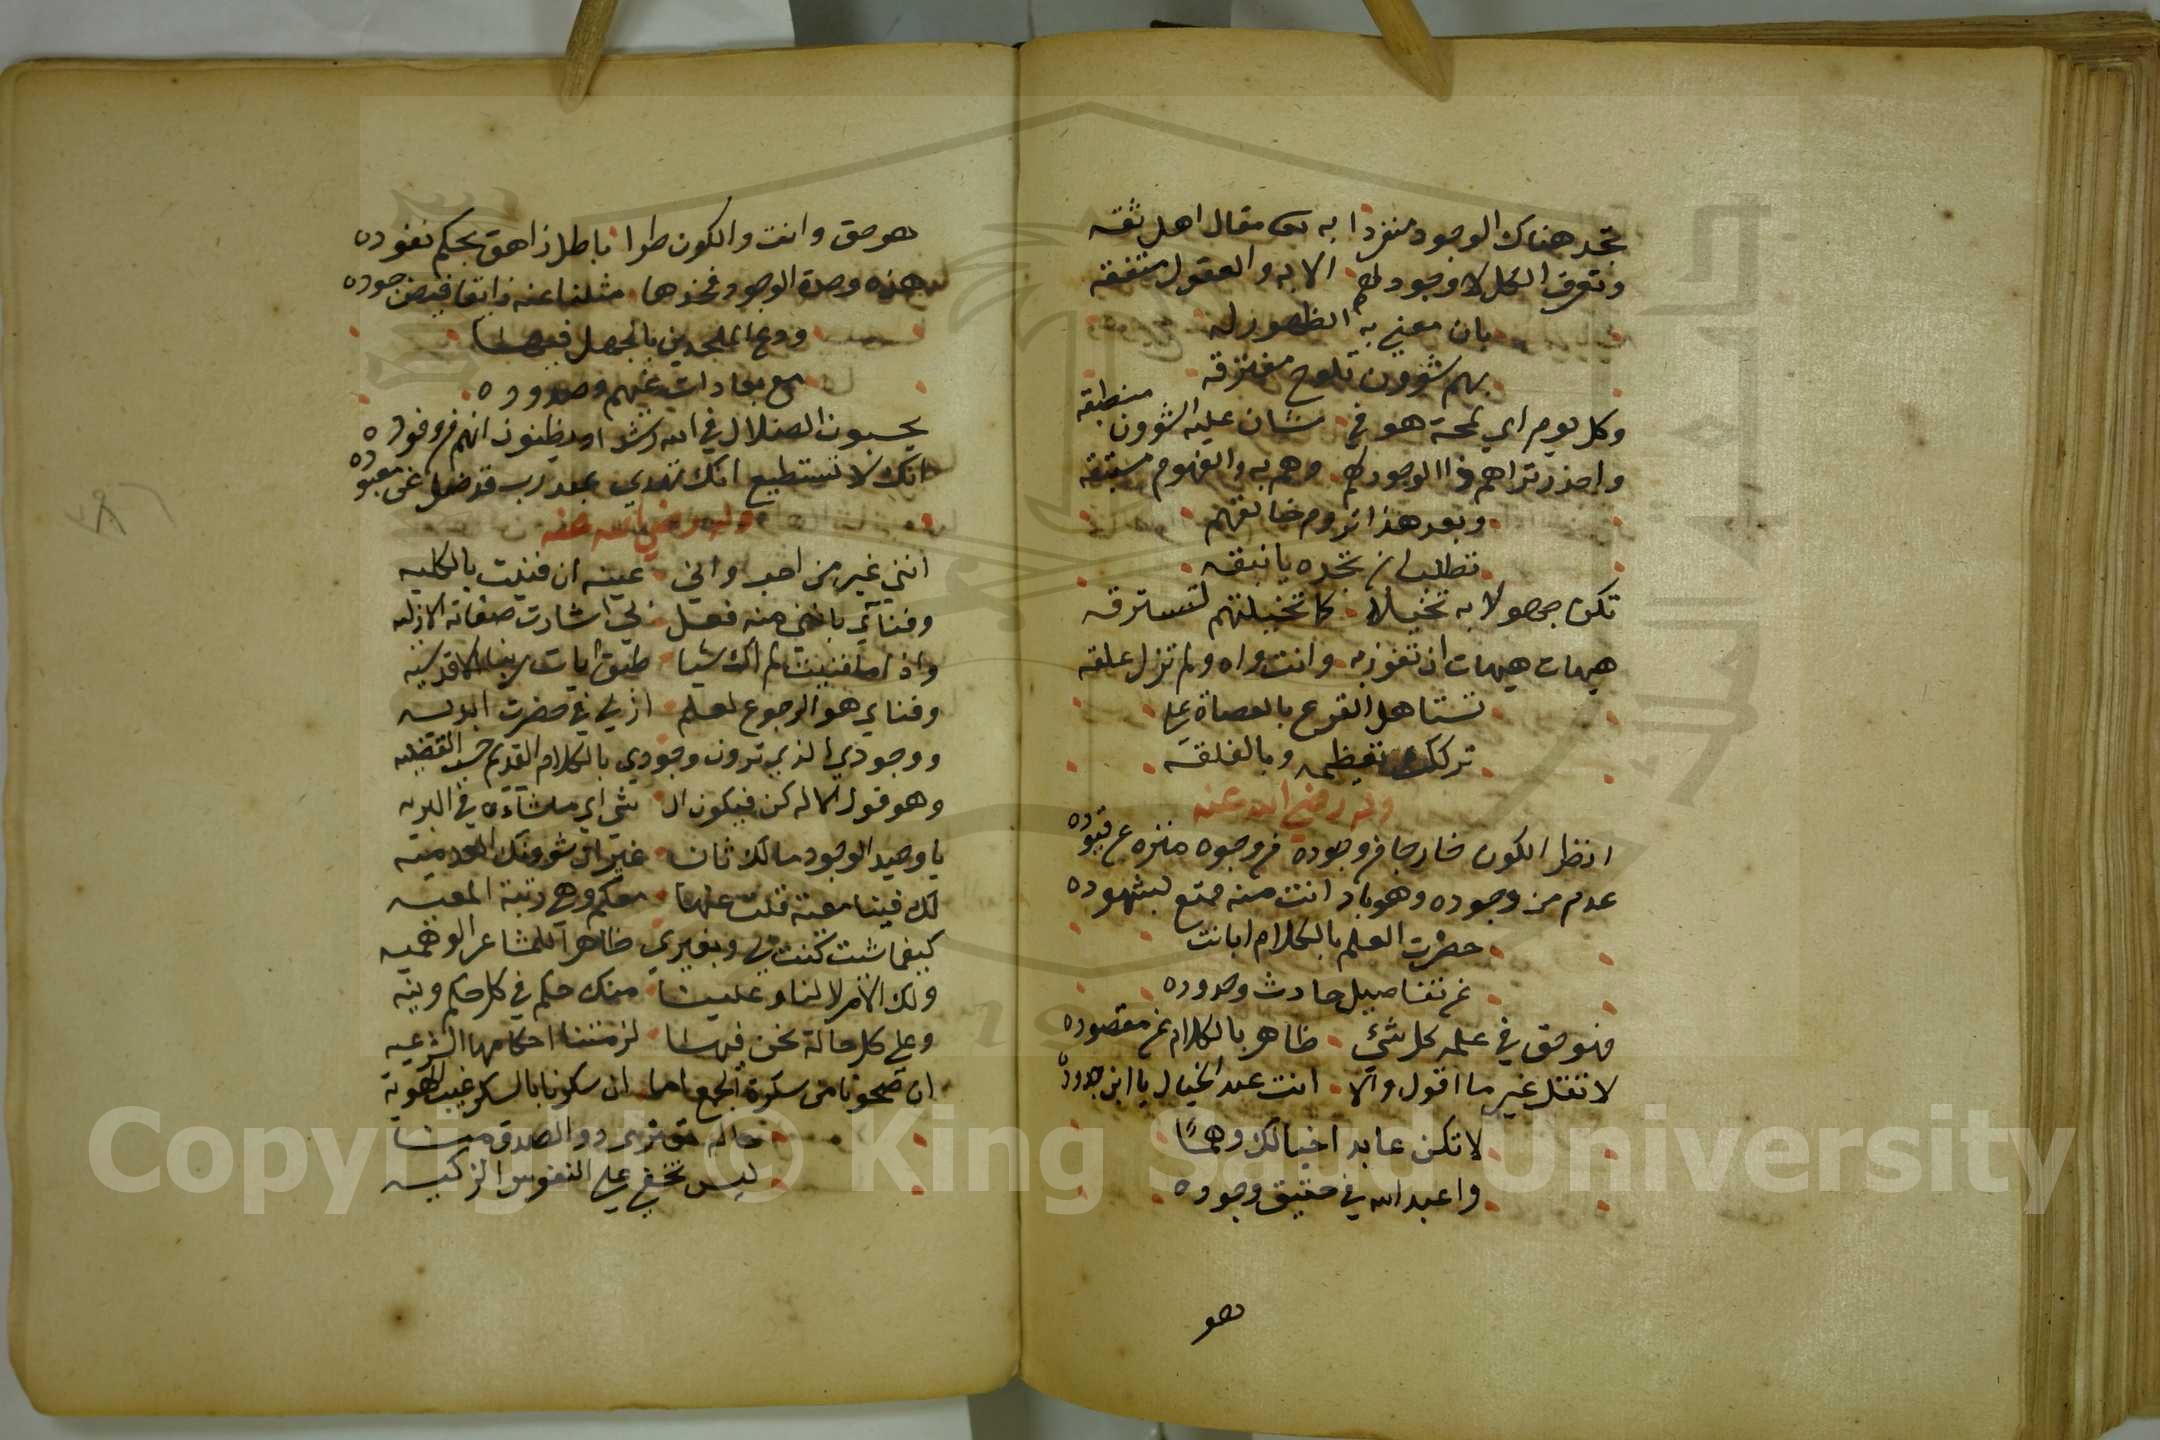 تجد هناك الوجود منفردا به مقال اهل ثقه
وتعرف الكل لا وجود لهم الا به والعقول متفقه
بان معنى به الظهور له
بهم شؤون تلوح مفترقه
وكل يوم اي لمحة هو في شان عليه الشؤون منطبقه
واحذر تراهم ذا الوجود لهم وهم به والفهوم مستبقه
وبعد هذا تروم خالقهم
تطلب ان تجده يا نبقه
تكن جهولا به تخيله كما تخيلتهم لتسترقه
هيهات هيهات ان تفوز به وانت واه ولم تزل علقه
تستاهل القرع بالعصاة على
تركك تعظيمه وبالفلقه
وله رضي الله عنه
انظر الكون خارجا من وجوده من وجوه منزه عن قيوده
عدم من وجوده وهو باد انت منه ممتع لشهوده
حضرت العلم بالكلام ابانت
عن تفاصيل حادث وحدوده
فهو حق في علمه كل شئ ظاهر بالكلام عن مقصوده
لا تقل غير ما اقول والا انت عبد الخيال يا ابن جدوده
لا تكن عابدا خيالك وهما
واعبد الله في حقيق وجوده
هو
هو حق وانت والكون طرا باطل زاهق بحكم نفوده
هذه وحدة الوجود فخذها مثلنا عنه ذائقا فيض جوده
ودع الملحدين بالجهل فيها
مع معادات غيهم وصدوده
يحسبون الضلال في الله رشدا ويظنون انهم من وفوده
انك لا تستطيع انك تهدي عبد رب قد ضل عن معبوده
وله رضي الله عنه
انني غير من احب واني عينه ان فنيت بالكليه
وفنآئي باني منه فعل لي اشارت صفاته الازليه
واذا ما فنيت لم اك شيا طبق ايات ربنا القدسيه
وفنايي هو الرجوع لعلم ازلي في حضرت ابديه
ووجودي الذي ترون وجودي بالكلام القديم حسب القضيه
وهو قول الاله كن فيكون ال شئ اي ما شاءه في البريه
يا وحيد الوجود مالك ثان غير ان شوونك العدميه
لك فينا معية قلت عنها معكم وهي رتبة المعيه
كيفما شئت كنت بي وبغيري ظاهرا للمشاعر الوهميه
ولك الامر لا لنا وعلينا منك حكم في كل حكم ونيه
وعلى كل حالة نحن فيها لزمتنا احكامها الشرعيه
ان صحونا من سكرة الجمع اما ان سكرنا بالسكر غيب الهويه
حالة حق ذو الصدق منا
ليس تخفى على النفوس الزكيه
Copyright © King Saud University